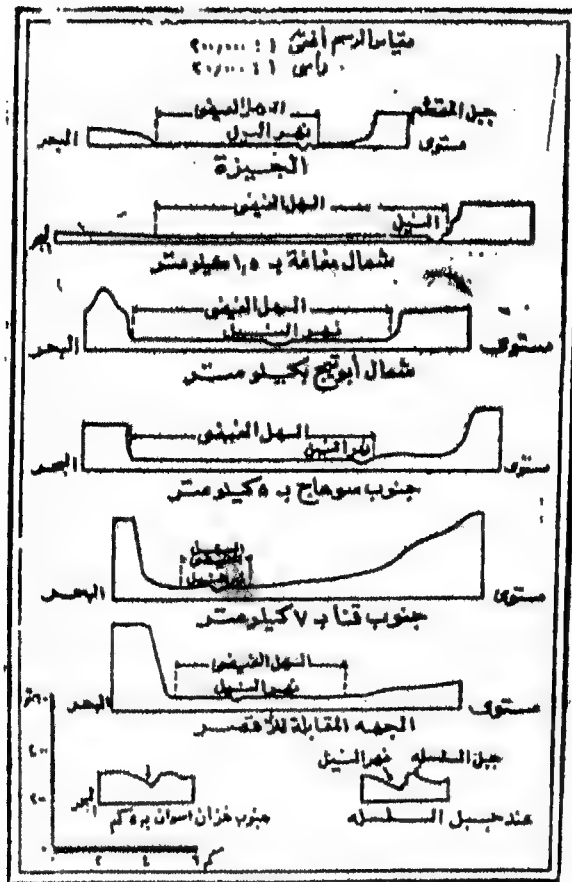 مقياس الرسم أفقى ١ : ٢٠٠,٠٠٠
رأسى ١ : ٢٠,٠٠٠
جبل المقطم
السهل الفيضى
نهر النيل
مستوى
البحر
الجيزة
السهل الفيضى
النيل
البحر
شمال مغاغة بـ ١,٥ كيلومتر
السهل الفيضى
نهر النيل
مستوى
البحر
شمال أبوتيج بكيلو متر
السهل الفيضى
نهر النيل
مستوى
البحر
جنوب سوهاج بـ ٥ كيلو متر
السهل
الفيضى
نهر النيل
مستوى
البحر
جنوب قنا بـ ٧ كيلو متر
السهل الفيضى
نهر النيل
مستوى
البحر
الجهه المقابلة للأقصر
متر
٤٠٠
٢٠٠
جبل السلسله
نهر النيل
البحر
جنوب خزان اسوان بـ ٥ كم
عند جبل السلسله
٠ ٢ ٤ ٦ كم